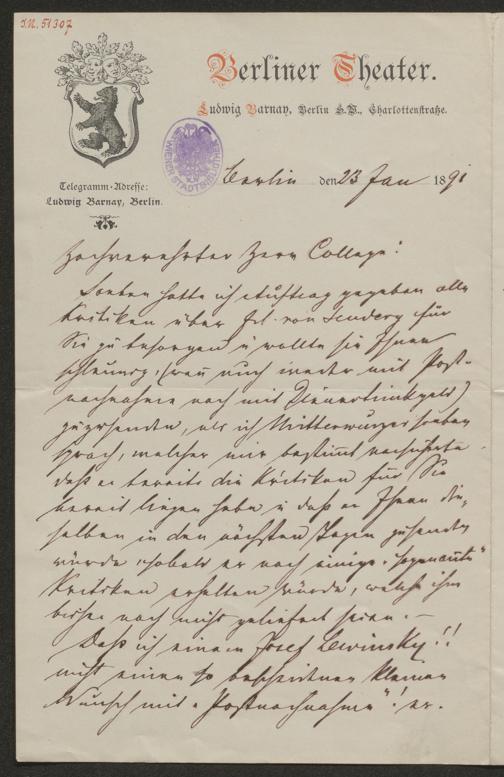 I.N. 51307
Berliner Theater.
Ludwig Barnay, Berlin S.W., Charlottenstraße.
WIENER STADTBIBLIOTHEK
Telegramm-Adresse:
Ludwig Barnay, Berlin.
Berlin den 23 Jan 1891
Hochverehrter Herr College!
Soeben hatte ich Auftrag gegeben alle
Kritiken über Frl. von für
Sie zu besorgen u wollte sie Ihnen
schleunig, (wenn auch weder mit Post-
nachnahme noch mit Dienertrinkgeld)
zusenden, als ich Mitterwurzer soeben
sprach, welcher mir bestimmt versicherte
daß er bereits die Kritiken für Sie
bereit liegen habe u daß er Ihnen die-
selben in den nächsten Tagen zusenden
würde, sobald er noch einige "sogenannte"
Kritiken erhalten würde, welche ihm
bisher noch nicht geliefert seien. –
Daß ich einem Josef Lewinsky!!
nicht einen so bescheidenen kleinen
Wunsch mit "Postnachnahme"! er-